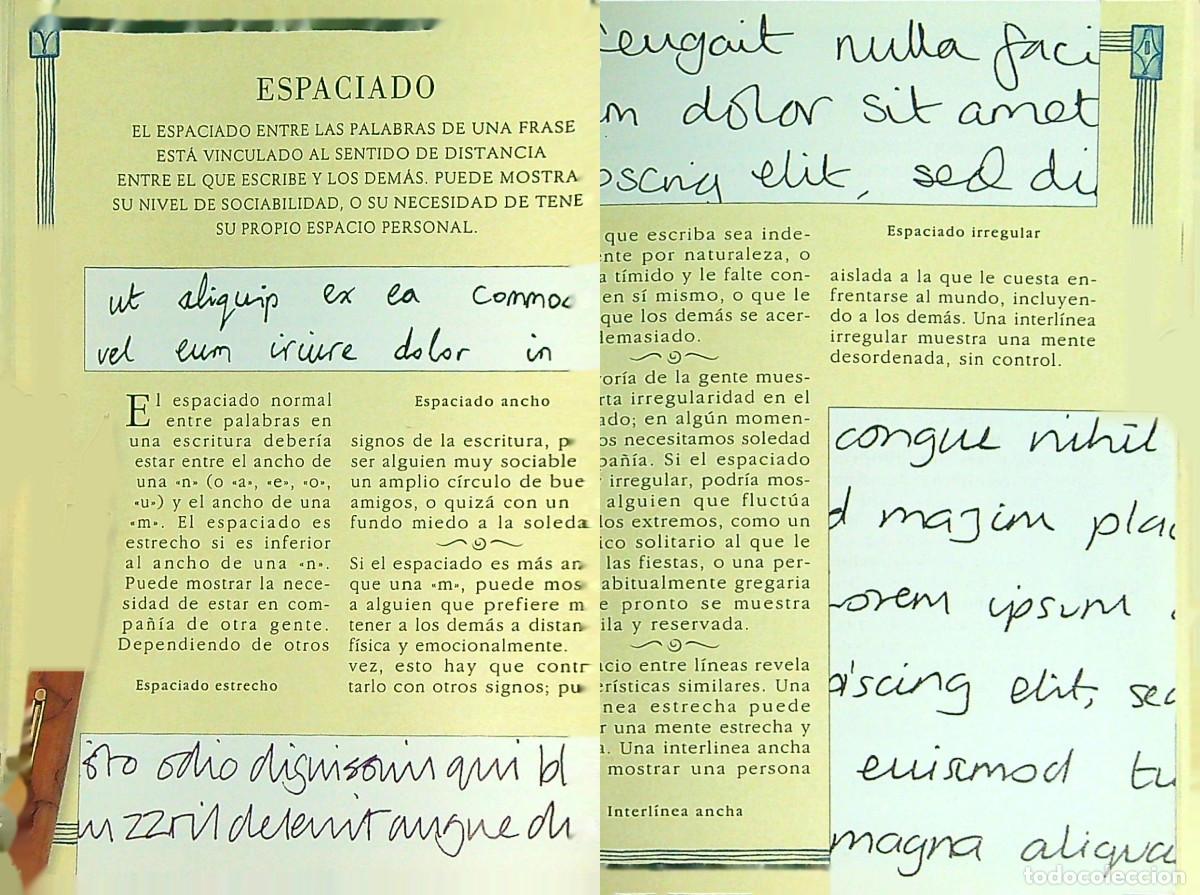 ESPACIADO
EL ESPACIADO ENTRE LAS PALABRAS DE UNA FRASE
ESTÁ VINCULADO AL SENTIDO DE DISTANCIA
ENTRE EL QUE ESCRIBE Y LOS DEMÁS. PUEDE MOSTRA
SU NIVEL DE SOCIABILIDAD, O SU NECESIDAD DE TENE
SU PROPIO ESPACIO PERSONAL.
ut aliquip ex ea commod
vel eum iriure dolor in
El espaciado normal
entre palabras en
una escritura debería
estar entre el ancho de
una «n» (o «a», «e», «o»,
«u») y el ancho de una
«m». El espaciado es
estrecho si es inferior
al ancho de una «n».
Puede mostrar la nece-
sidad de estar en com-
pañía de otra gente.
Dependiendo de otros
Espaciado estrecho
Espaciado ancho
signos de la escritura, p
ser alguien muy sociable
un amplio círculo de bue
amigos, o quizá con un
fundo miedo a la soleda
Si el espaciado es más an
que una «m», puede mos
a alguien que prefiere m
tener a los demás a distan
física y emocionalmente.
vez, esto hay que contr
tarlo con otros signos; pu
isto odio dignissim qui bl
zzril delenit augue du
feugait nulla faci
m dolor sit amet
oscing elit, sed di
que escriba sea inde-
nte por naturaleza, o
a tímido y le falte con-
en sí mismo, o que le
que los demás se acer-
demasiado.
oría de la gente mues-
rta irregularidad en el
ado; en algún momen-
os necesitamos soledad
pañía. Si el espaciado
irregular, podría mos-
alguien que fluctúa
los extremos, como un
ico solitario al que le
las fiestas, o una per-
abitualmente gregaria
e pronto se muestra
ila y reservada.
cio entre líneas revela
erísticas similares. Una
nea estrecha puede
r una mente estrecha y
a. Una interlinea ancha
mostrar una persona
Interlínea ancha
Espaciado irregular
aislada a la que le cuesta en-
frentarse al mundo, incluyen-
do a los demás. Una interlínea
irregular muestra una mente
desordenada, sin control.
congue nihil
d mazim plac
Lorem ipsum
piscing elit, sed
euismod tu
magna aliqua
todocoleccion